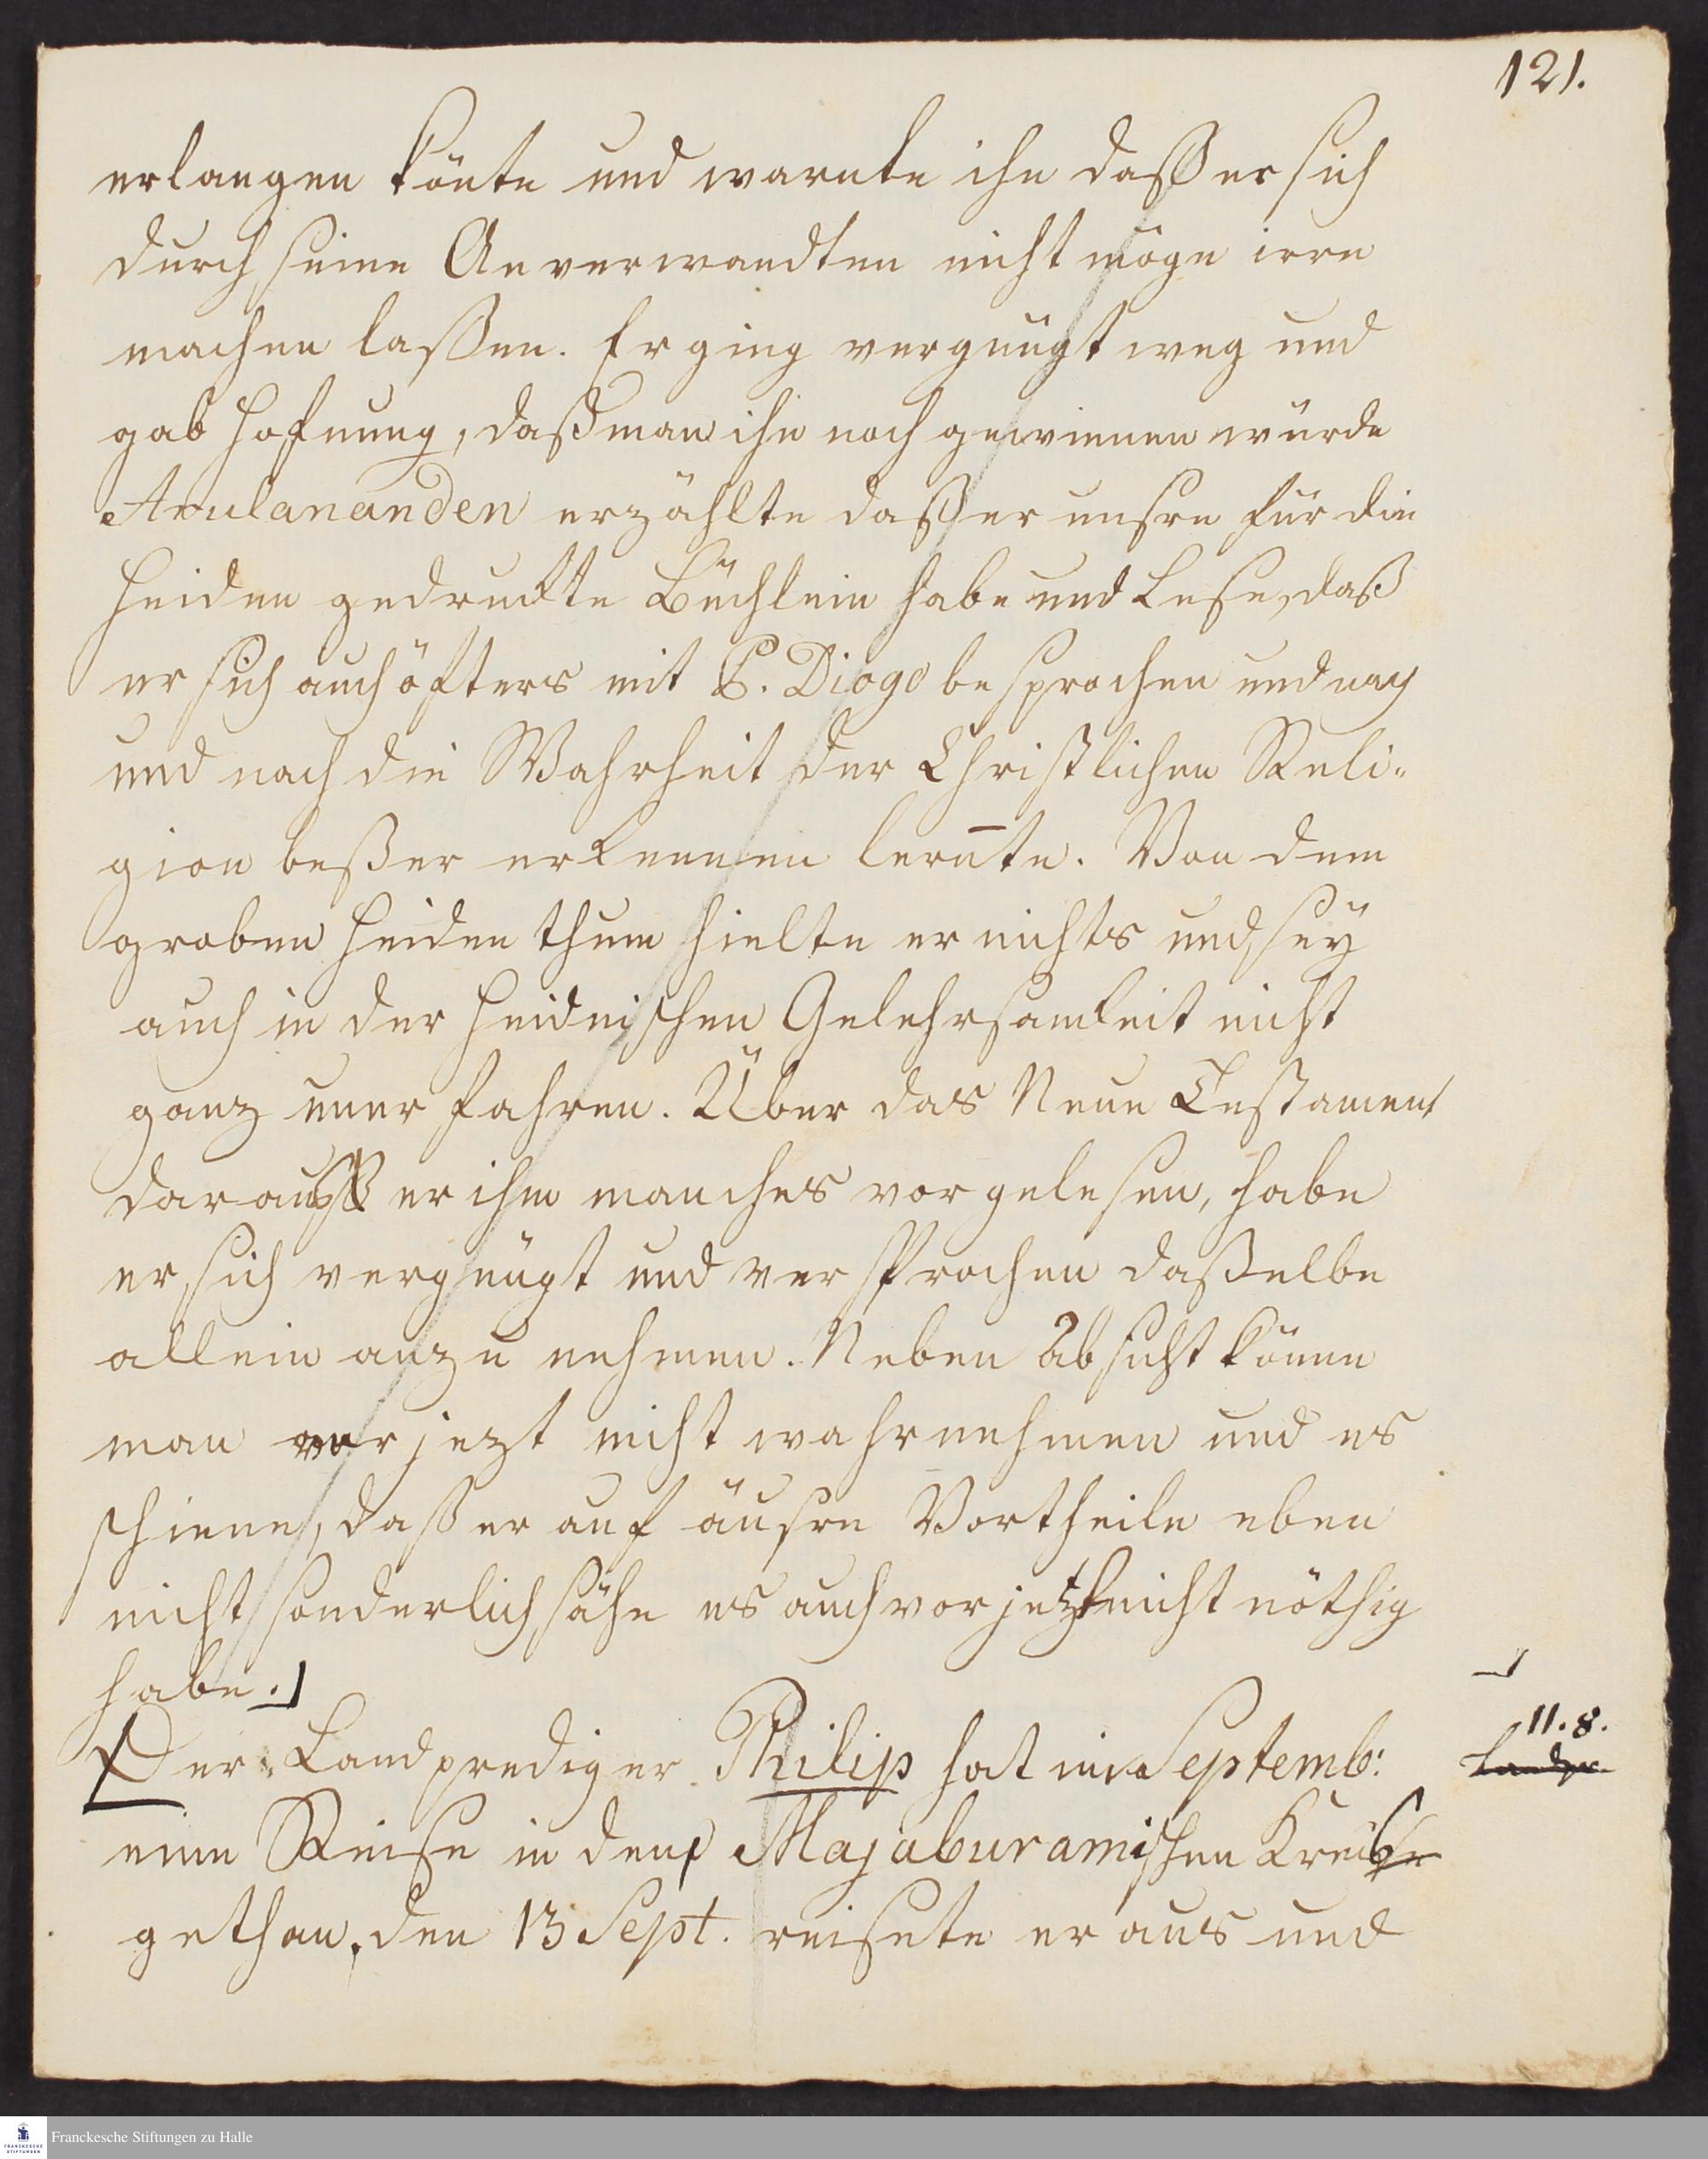 121.
erlangen könte und warnte ihn daß er sich
durch seine Anverwandten nicht möge irre
machen laßen. Er ging vergnügt weg und
gab Hofnung, daß man ihn noch gewinnen würde
Arulananden erzählte daß er unsre für die
Heiden gedruckte Büchlein habe und Lese, daß
er sich auch öfters mit P. Diogo besprochen und nach
und nach die Wahrheit der Christlichen Reli-
gion beßer erkennen lernte. Von dem
groben Heidenthum hielte er nichts und sey
auch in der Heidnischen Gelehrsamkeit nicht
ganz unerfahren. Über das Neue Testament
darauß er ihm manches vorgelesen, habe
er sich vergnügt und versprochen daßelbe
allein anzunehmen. Neben Absicht könne
man vor jezt nicht wahrnehmen und es
schiene, daß er auf äusre Vortheile eben
nicht sonderlich sähe es auch vor jetzt nicht nöthig
habe.
Der Landprediger Philip hat im Septemb:
11. 8.
Landpr.
eine Reise in den Majaburamischen Kreis
gethan, den 13 Sept. reisete er aus und
Franckesche Stiftungen zu Halle